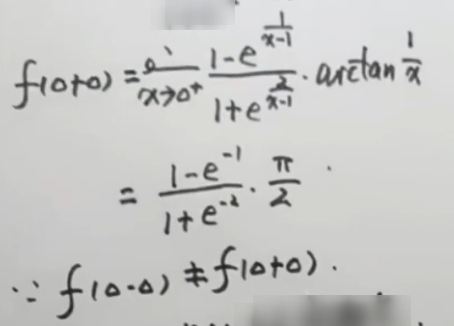 f(0+0) = lim x→0⁺ (1-e^(1/(x-1)))/(1+e^(2/(x-1))) · arctan 1/x
= (1-e⁻¹)/(1+e⁻²) · π/2 .
∵ f(0-0) ≠ f(0+0) .